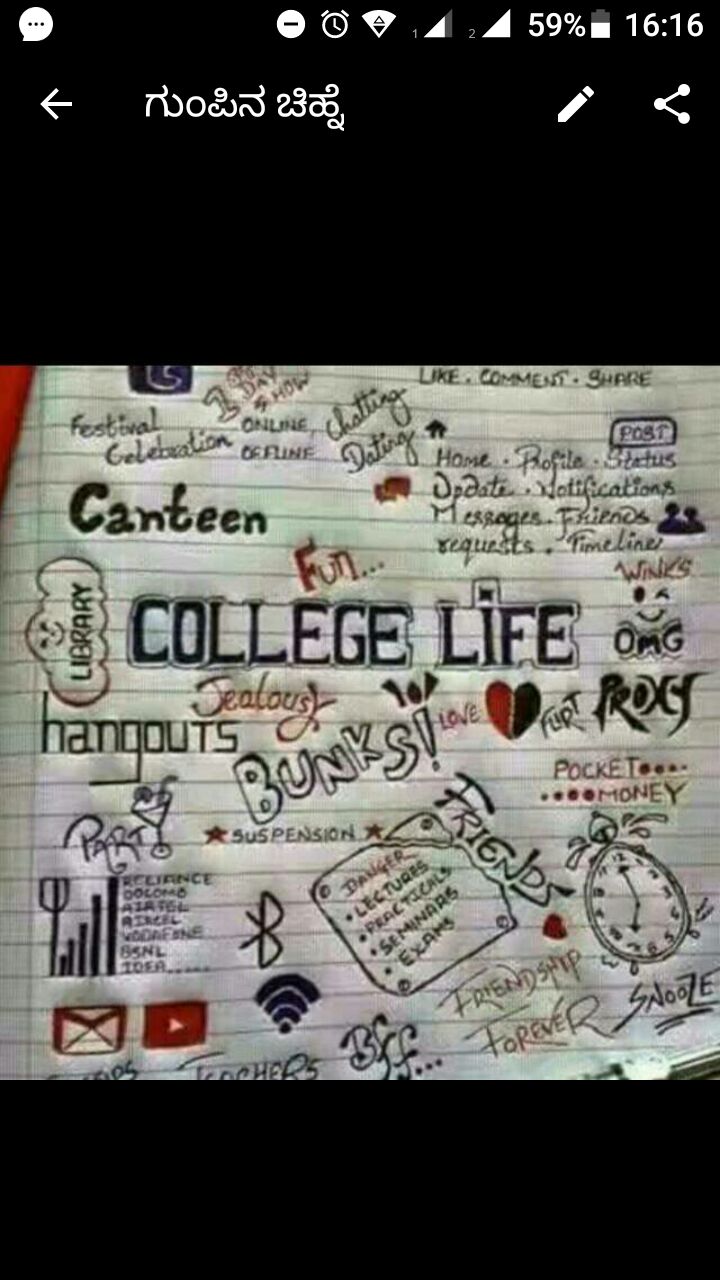 1 2 59% 16:16
ಗುಂಪಿನ ಚಿಹ್ನೆ
LIKE . COMMENT . SHARE
DAY
SHOW
Festival
Celebration
ONLINE,
OFFLINE
Chatting
Dating
POST
Home . Profile . Status
Update . Notifications
Messages . Friends
requests . Timeline
Canteen
Fun...
WINKS
LIBRARY
COLLEGE LIFE
OMG
Jealousy
hangouts
BUNKS!
LOVE
FLIRT
PROXY
POCKET
MONEY
PARTY
SUSPENSION
FRIENDS
DANGER
• LECTURES
• PRACTICALS
• SEMINARS
• EXAMS
12
RELIANCE
DOCOMO
AIRTEL
AIRCEL
VODAFONE
BSNL
IDEA......
FRIENDSHIP
FOREVER
SNOOZE
Bff...
TEACHERS